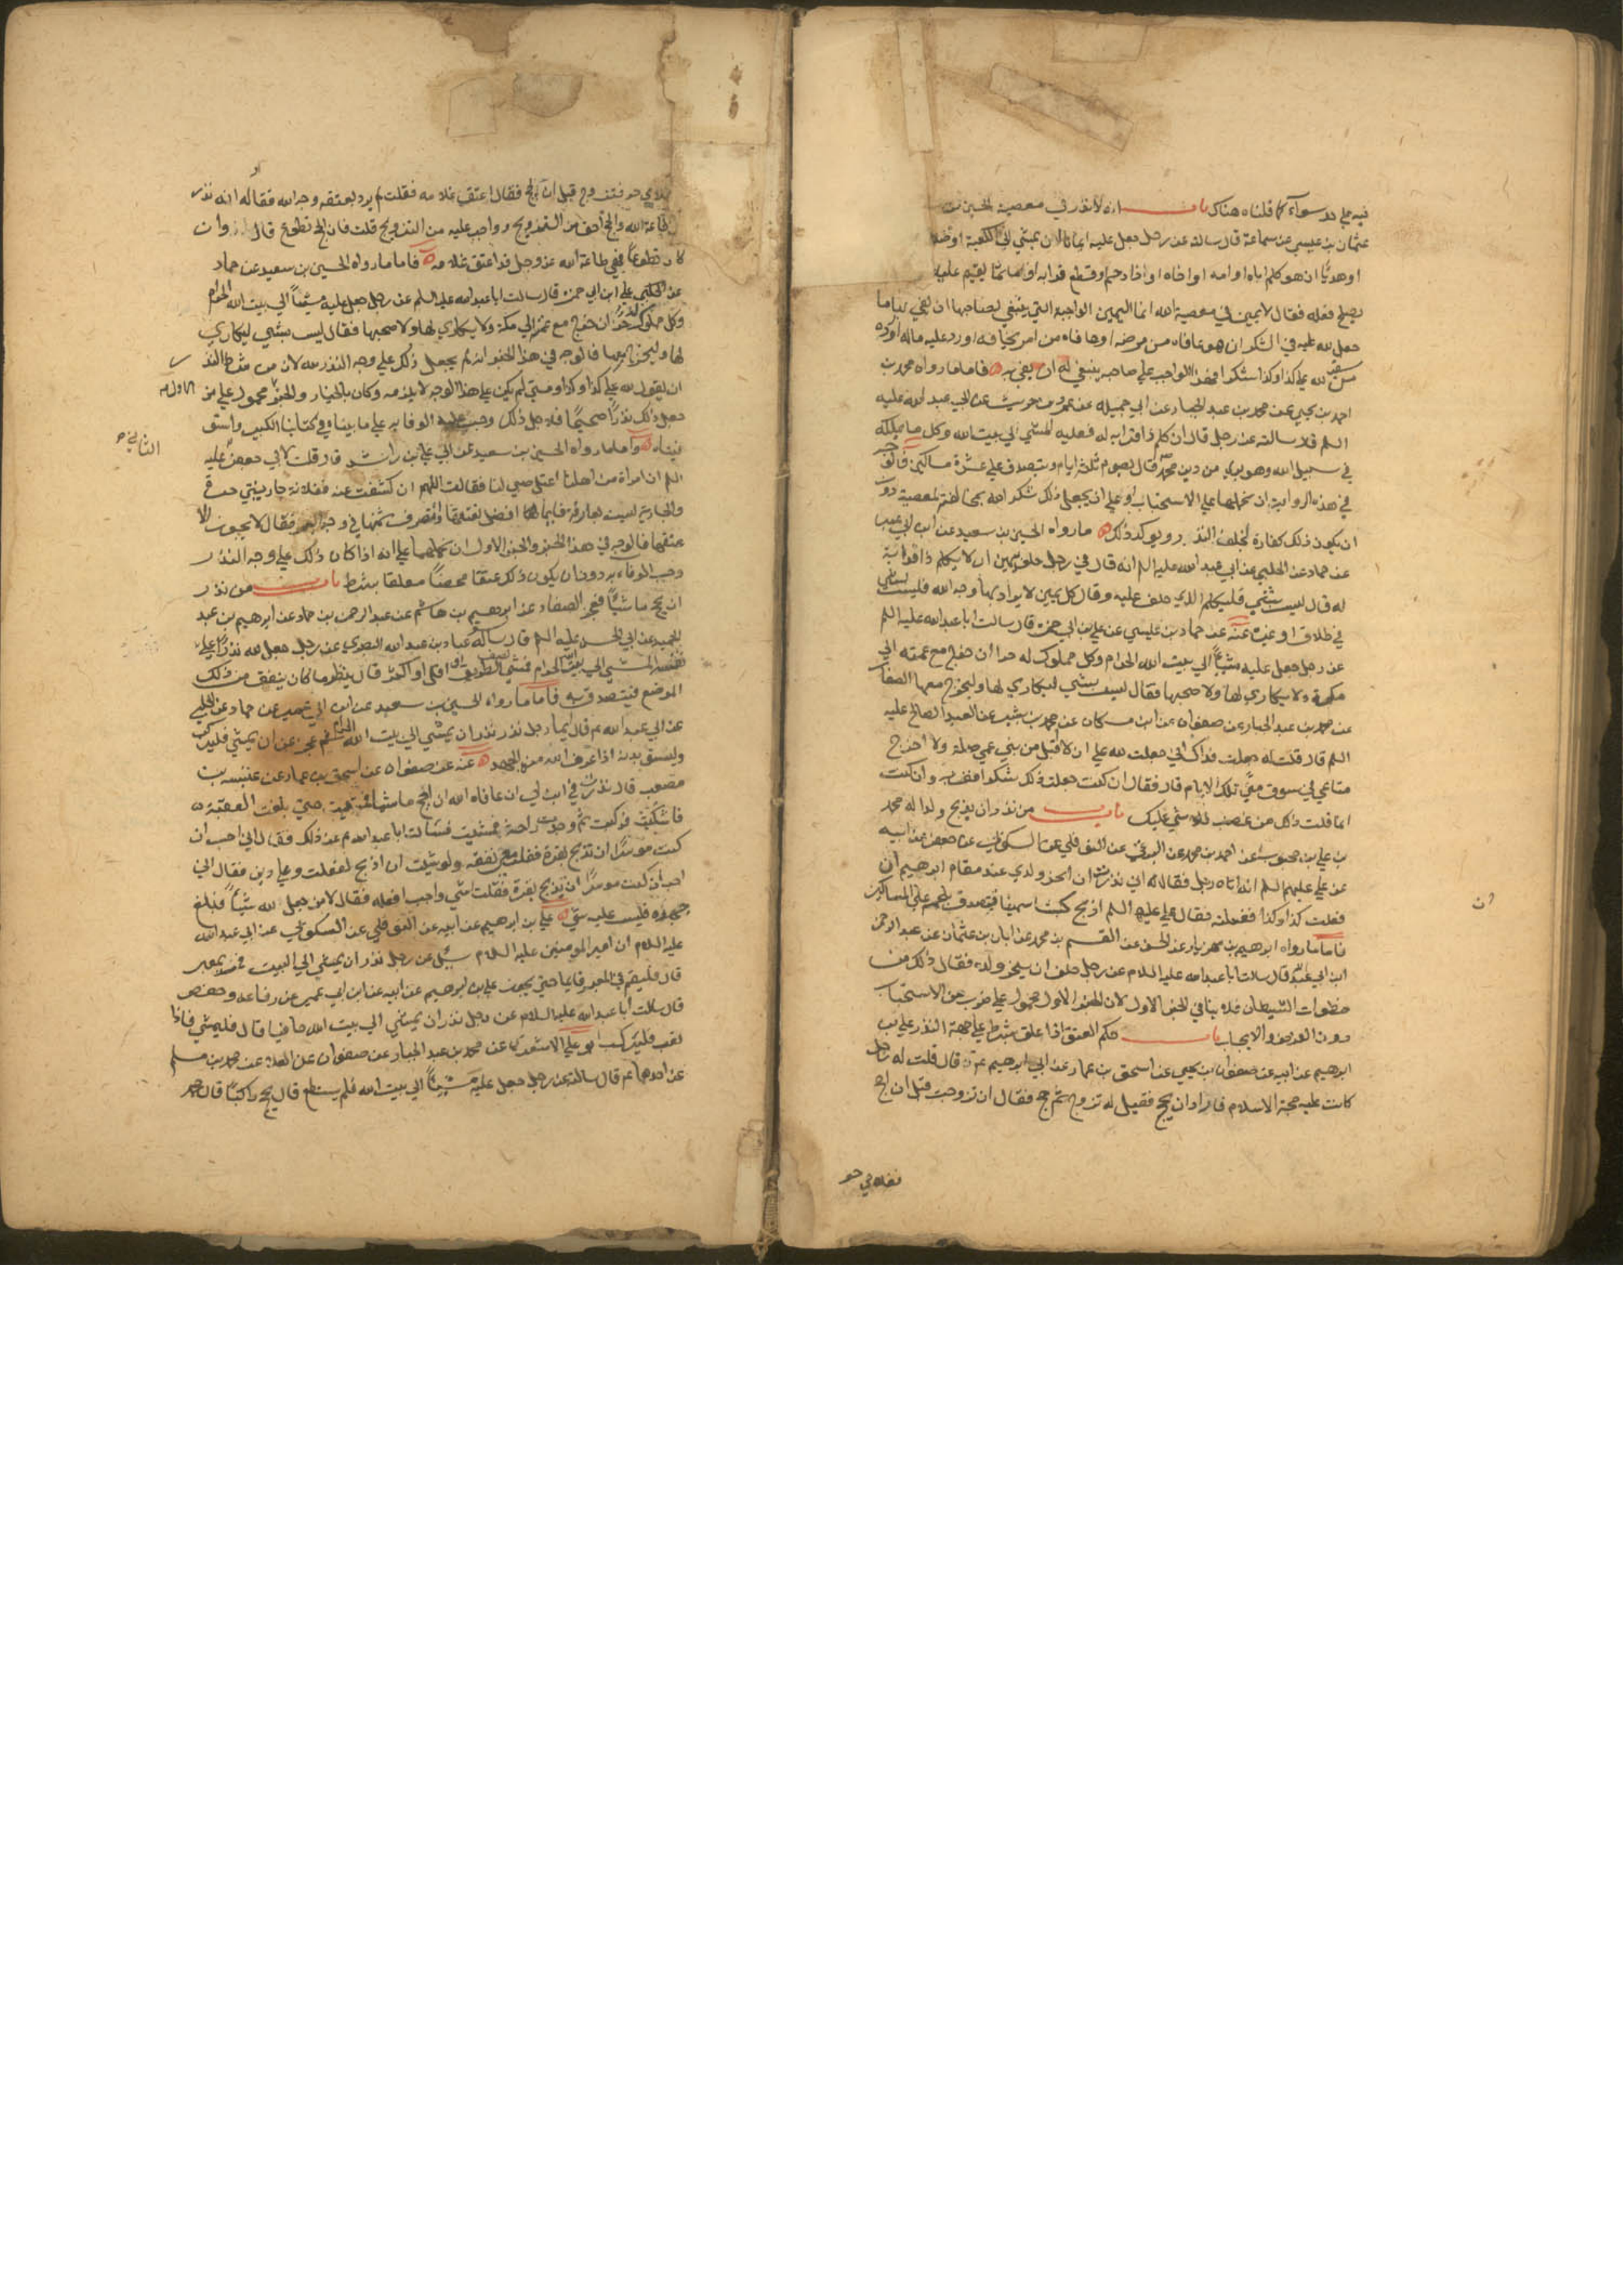 فيه علي حد سواء كما قلناه هناك باب انه لا نذر في معصية الحسين بن
عثمان بن عيسي عن سماعة قال سالته عن رجل جعل عليه ايمانا ان يمشي الي الكعبة او صدقة
او هديا ان هو كلم اباه او امه او اخاه او ذا رحم او قطع قرابة او ماثما يقيم عليه
يصلح فعله فقال لا يمين في معصية الله انما اليمين الواجبة التي ينبغي لصاحبها ان يفي بها ما
جعل لله عليه في الشكر ان هو عافاه من مرضه او عافاه من امر يخافه او رد عليه ماله او رده
من سفر لله علي كذا وكذا شكرا فهذا الواجب علي صاحبه ينبغي له ان يفي به فاما ما رواه محمد بن
احمد بن يحيي عن محمد بن عبد الجبار عن ابي جميلة عن عمرو بن حريث عن ابي عبد الله عليه
السلم قال سالته عن رجل قال ان كلم ذا قرابة له فعليه المشي الي بيت الله وكل ما يملكه
في سبيل الله وهو بري من دين محمد قال يصوم ثلثة ايام ويتصدق علي عشرة مساكين فالوجه
في هذه الرواية ان نحملها علي الاستحباب او علي ان يجعل ذلك شكرا لله بمخالفته لمعصية دون
ان يكون ذلك كفارة لخلف النذر ويؤكد ذلك ما رواه الحسين بن سعيد عن ابن ابي عمير
عن حماد عن الحلبي عن ابي عبد الله عليه السلم انه قال في رجل حلف بيمين ان لا يكلم ذا قرابة
له قال ليس بشي فليكلم الذي حلف عليه وقال كل يمين لا يراد بها وجه الله فليس بشي
في طلاق او غيره عنه عن حماد بن عيسي عن علي بن ابي حمزة قال سالت ابا عبد الله عليه السلم
عن رجل جعل عليه مشيا الي بيت الله الحرام وكل مملوك له حرا ان خرج مع عمته الي
مكة ولا يكاري لها ولا صحبها فقال ليس بشي ليكاري لها وليخرج معها الصفار
عن محمد بن عبد الجبار عن صفوان عن ابن مسكان عن محمد بن بشير عن العبد الصالح عليه
السلم قال قلت له جعلت فداك اني جعلت لله علي ان لا اقبل من بني عمي صلة ولا اخرج
متاعي في سوق مني تلك الايام قال فقال ان كنت جعلت ذلك شكرا فف به وان كنت
انما قلت ذلك من غضب فلا شي عليك باب من نذر ان يذبح ولدا له محمد
بن علي بن محبوب عن احمد بن محمد عن البرقي عن النوفلي عن السكوني عن جعفر عن ابيه
عن علي عليهم السلم انه اتاه رجل فقال له اني نذرت ان انحر ولدي عند مقام ابرهيم ان
فعلت كذا وكذا ففعلته فقال علي عليه السلم اذبح كبشا سمينا فتصدق بلحمه علي المساكين
فاما ما رواه ابرهيم بن مهزيار عن الحسن عن القسم بن محمد عن ابان بن عثمان عن عبد الرحمن
ابن ابي عبد الله قال سالت ابا عبد الله عليه السلام عن رجل حلف ان ينحر ولده فقال ذلك من
خطوات الشيطان فلا ينافي الخبر الاول لان الخبر الاول محمول علي ضرب من الاستحباب
دون الفرض والايجاب باب حكم العتق اذا علق بشرط علي جهة النذر علي بن
ابرهيم عن ابيه عن صفوان بن يحيي عن اسحق بن عمار عن ابي ابرهيم ع قال قلت له رجل
كانت عليه حجة الاسلام فاراد ان يحج فقيل له تزوج ثم حج فقال ان تزوجت قبل ان احج
فغلامي حر
فغلامي حر فتزوج قبل ان يحج فقال اعتق غلامه فقلت لم يرد بعتقه وجه الله فقال انه نذر
في طاعة الله والحج احق من التزويج واوجب عليه من التزويج قلت فان الحج تطوع قال وان
كان تطوعا فهي طاعة الله عز وجل قد اعتق غلامه فاما ما رواه الحسين بن سعيد عن حماد
عن علي ابن ابي حمزة قال سالت ابا عبد الله عليه السلم عن رجل جعل عليه مشيا الي بيت الله الحرام
وكل مملوك له حر ان خرج مع عمته الي مكة ولا يكاري لها ولا صحبها فقال ليس بشي ليكاري
لها وليخرج معها فالوجه في هذا الخبر انه لم يجعل ذلك علي وجه النذر لله لان من شرط النذر
ان يقول لله علي كذا وكذا ومتي لم يكن علي هذا الوجه لا يلزمه وكان بالخيار والخبر الاول محمول علي من
جعل ذلك نذرا صحيحا فلاجل ذلك وجب عليه الوفا به علي ما بيناه في كتابنا الكبير واستو
فيناه واما ما رواه الحسين بن سعيد عن ابي علي بن راشد قال قلت لابي جعفر عليه
الثاني
السلم ان امراة من اهلنا اعتل صبي لنا فقالت اللهم ان كشفت عنه ففلانة جاريتي حرة
والجارية ليست بعارفة فايهما افضل نعتقها او نصرف ثمنها في وجه البر فقال لا يجوز الا
عتقها فالوجه في هذا الخبر والخبر الاول ان نحملهما علي انه اذا كان ذلك علي وجه النذر
وجب الوفاء به دون ان يكون ذلك عتقا محضا معلقا بشرط باب من نذر
ان يحج ماشيا فعجز الصفار عن ابرهيم بن هاشم عن عبد الرحمن بن حماد عن ابرهيم بن عبد
الحميد عن ابي الحسن عليه السلم قال ساله عباد بن عبد الله البصري عن رجل جعل لله نذرا علي
نفسه المشي الي بيت الله الحرام فمشي نصف الطريق او اقل او اكثر قال ينظر ما كان ينفق من ذلك
الموضع فيتصدق به فاما ما رواه الحسين بن سعيد عن ابن ابي عمير عن حماد عن الحلبي
عن ابي عبد الله ع قال ايما رجل نذر نذرا ان يمشي الي بيت الله الحرام ثم عجز عن ان يمشي فليركب
وليسق بدنة اذا عرف الله منه الجهد عنه عن صفوان عن اسحق بن عمار عن عنبسة بن
مصعب قال نذرت في ابن لي ان عافاه الله ان احج ماشيا فمشيت حتي بلغت العقبة
فاشتكيت فركبت ثم وجدت راحة فمشيت فسالت ابا عبد الله ع عن ذلك فقال اني احب ان
كنت موسرا ان تذبح بقرة فقلت معي نفقة ولو شئت ان اذبح لفعلت وعلي دين فقال اني
احب ان كنت موسرا ان تذبح بقرة فقلت اشي واجب افعله فقال لا من جعل لله شيئا فبلغ
جهده فليس عليه شي علي بن ابرهيم عن ابيه عن النوفلي عن السكوني عن ابي عبد الله
عليه السلام ان امير المومنين عليه السلام سئل عن رجل نذر ان يمشي الي البيت فمر بمعبر
قال فليقم في المعبر قايما حتي يجوز علي بن ابرهيم عن ابيه عن ابن ابي عمير عن رفاعة وحفص
قال سالت ابا عبد الله عليه السلام عن رجل نذر ان يمشي الي بيت الله حافيا قال فليمشي فاذا
تعب فليركب ابو علي الاشعري عن محمد بن عبد الجبار عن صفوان عن العلا عن محمد بن مسلم
عن احدهما ع قال سالته عن رجل جعل عليه مشيا الي بيت الله فلم يستطع قال يحج راكبا قال محمد